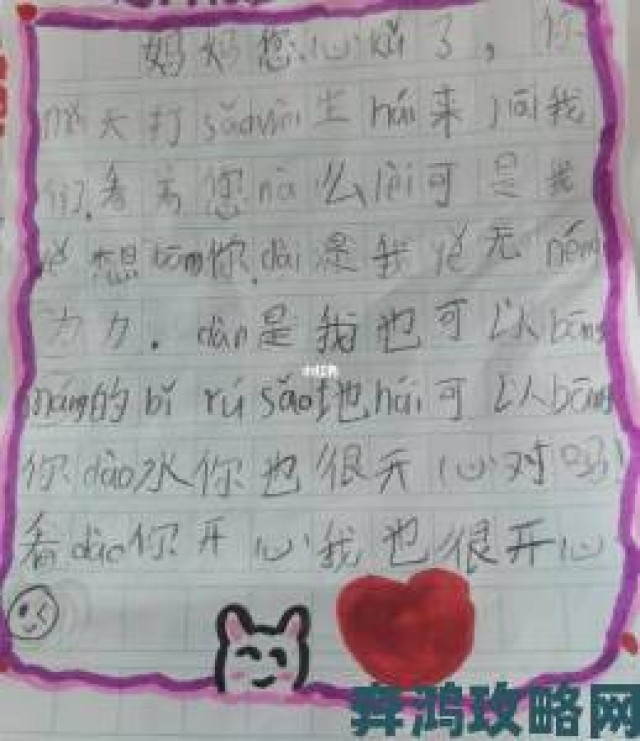 妈妈您心kǔ了，你
天打sǎo 生 hái 来 问我
们.看 您nà么lèi可是我
yě想bāng你.dài是我yě无néng
为力.dàn是我也可以bāng
máng的bǐ rú sǎo地hái可以bāng
你dào水你也很开心对吗
看dào你开心我也很开心
小红书
奔鸿攻略网